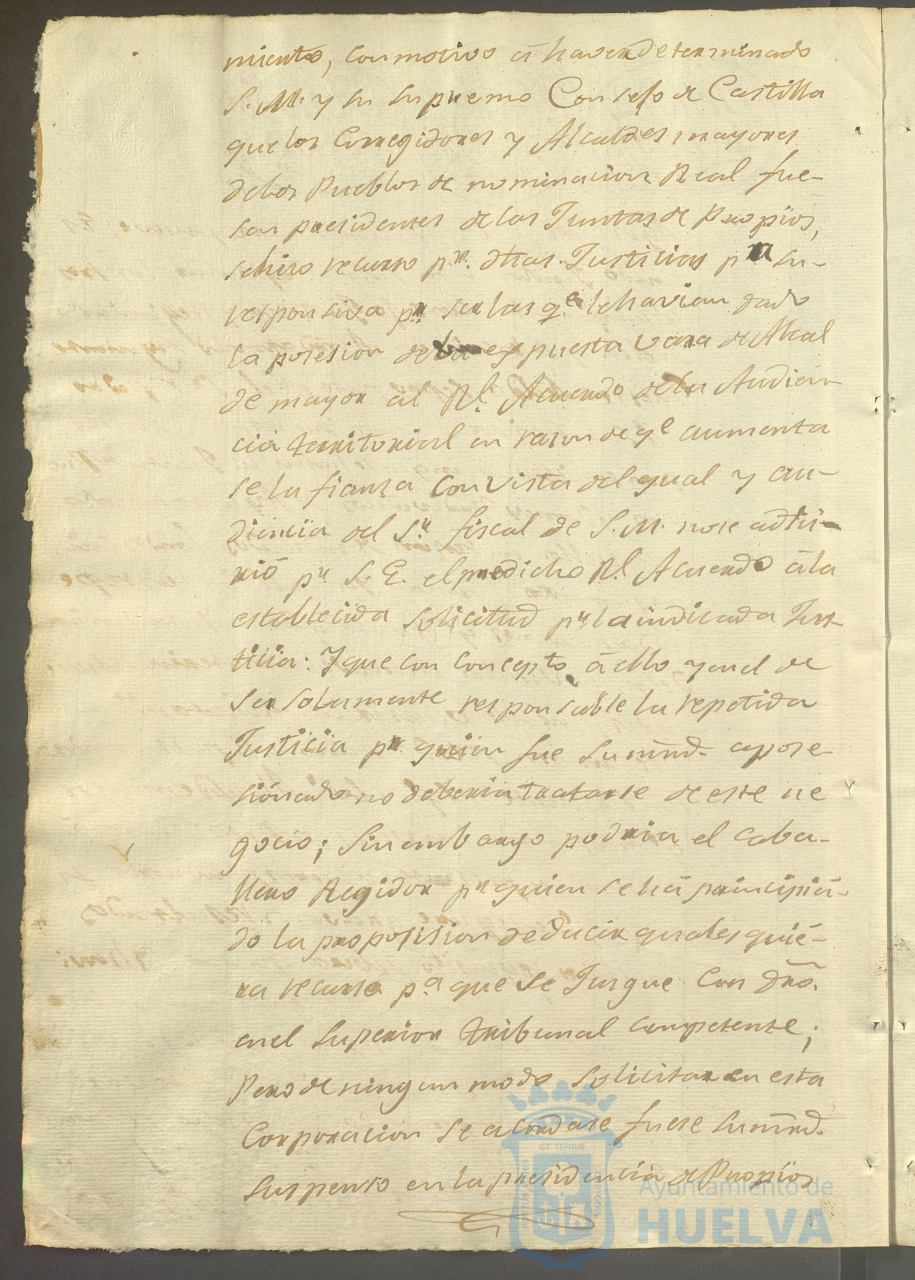 miento, con motivo á haver determinado
S. M. y su supremo Consejo de Castilla
que los Corregidores y Alcaldes mayores
de los Pueblos de nominacion Real fue-
sen presidentes de las Juntas de Propios,
se hizo recurso pr. dhas. Justicias pa su
responsiva pr ser las qe le havian dado
la posesion de la expuesta vara de Alcal
de mayor al Rl. Acuerdo de la Audien-
cia territorial en razon de qe aumenta
se la fianza con vista del qual y au-
diencia del Sr. fiscal de S. M. no se adhi-
rió pr S. E. el predicho Rl. Acuerdo á la
establecida solicitud pr la indicada Jus-
ticia: Y que con concepto á ello y en el de
ser solamente responsable la repetida
Justicia pr. quien fue su mrd. apose-
sionado no deberia tratarse de este ne
gocio; sin embargo podria el caba-
llero Regidor pr quien se há principia-
do la proposision deducir qualesquié-
ra recurso pa que se Jusgue con dro.
en el superior tribunal competente;
Pero de ningun modo solicitar en esta
Corporacion se acordase fuese su mrd.
suspenso en la presidencia de Propios
Ayuntamiento de
HUELVA